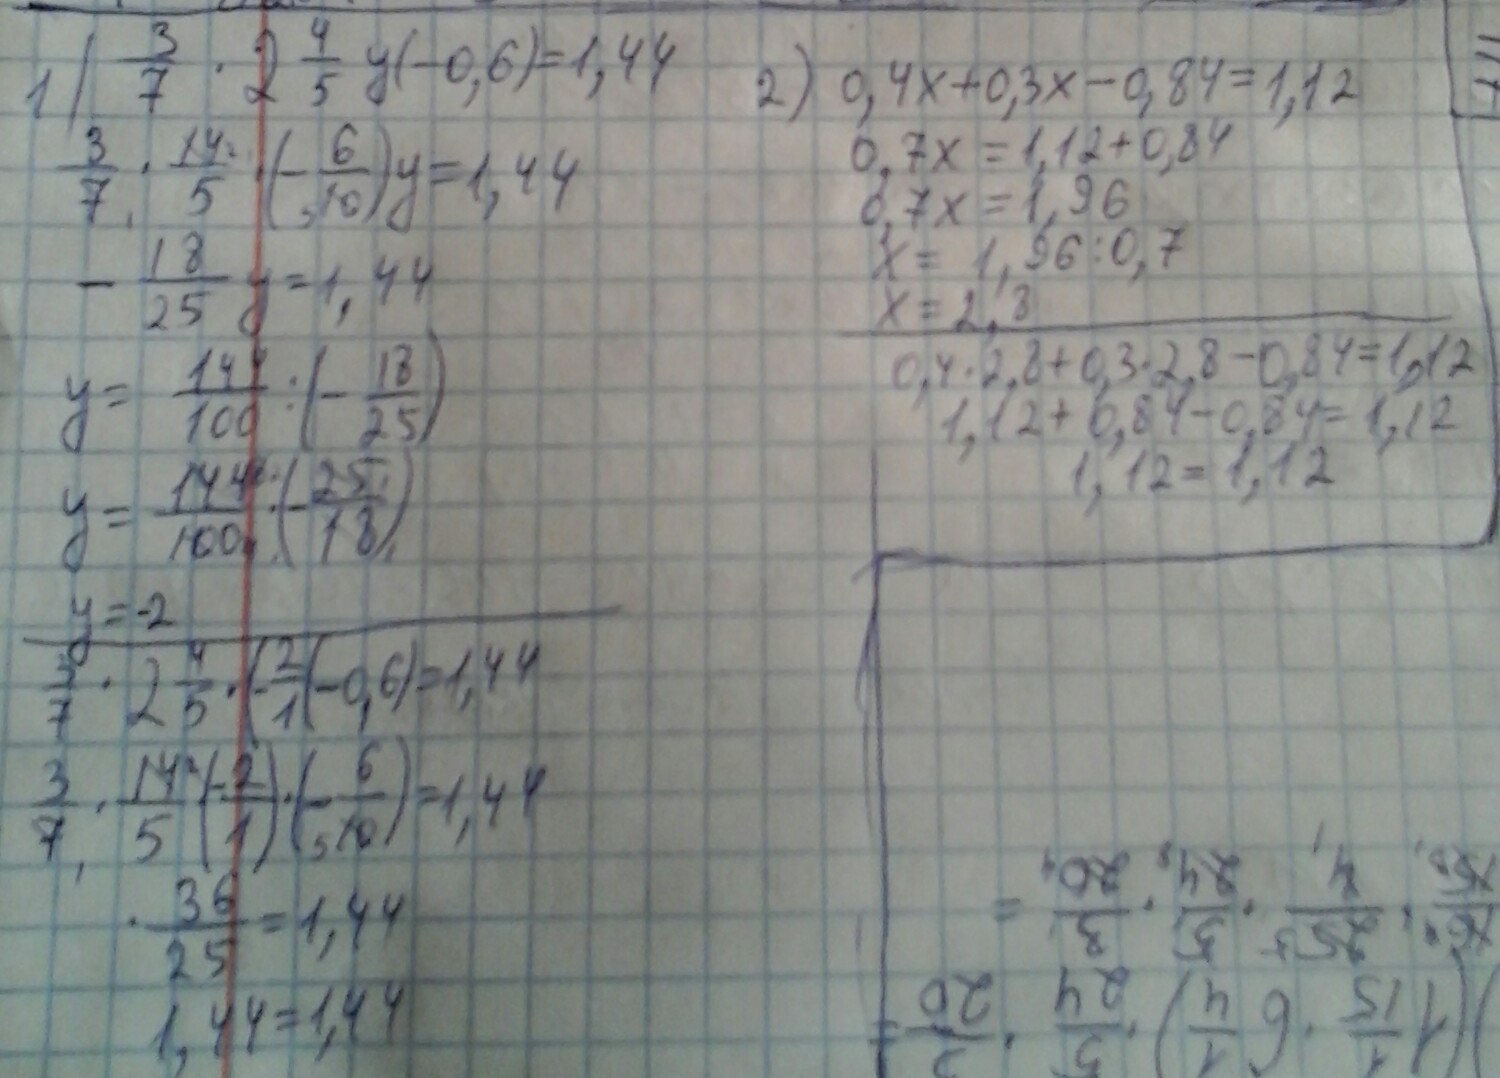 1) 3/7 · 2 4/5 y(-0,6)=1,44
3/7 · 14/5 · (-6/10)y=1,44
-18/25 y=1,44
y= 144/100 : (-18/25)
y= 144/100 · (-25/18)
y=-2
3/7 · 2 4/5 · (-2/1(-0,6)=1,44
3/7 · 14/5 (-2/1) · (-6/10)=1,44
· 36/25 =1,44
1,44=1,44
2) 0,4x+0,3x-0,84=1,12
0,7x=1,12+0,84
0,7x=1,96
x= 1,96:0,7
x=2,8
0,4·2,8+0,3·2,8-0,84=1,12
1,12+0,84-0,84=1,12
1,12=1,12